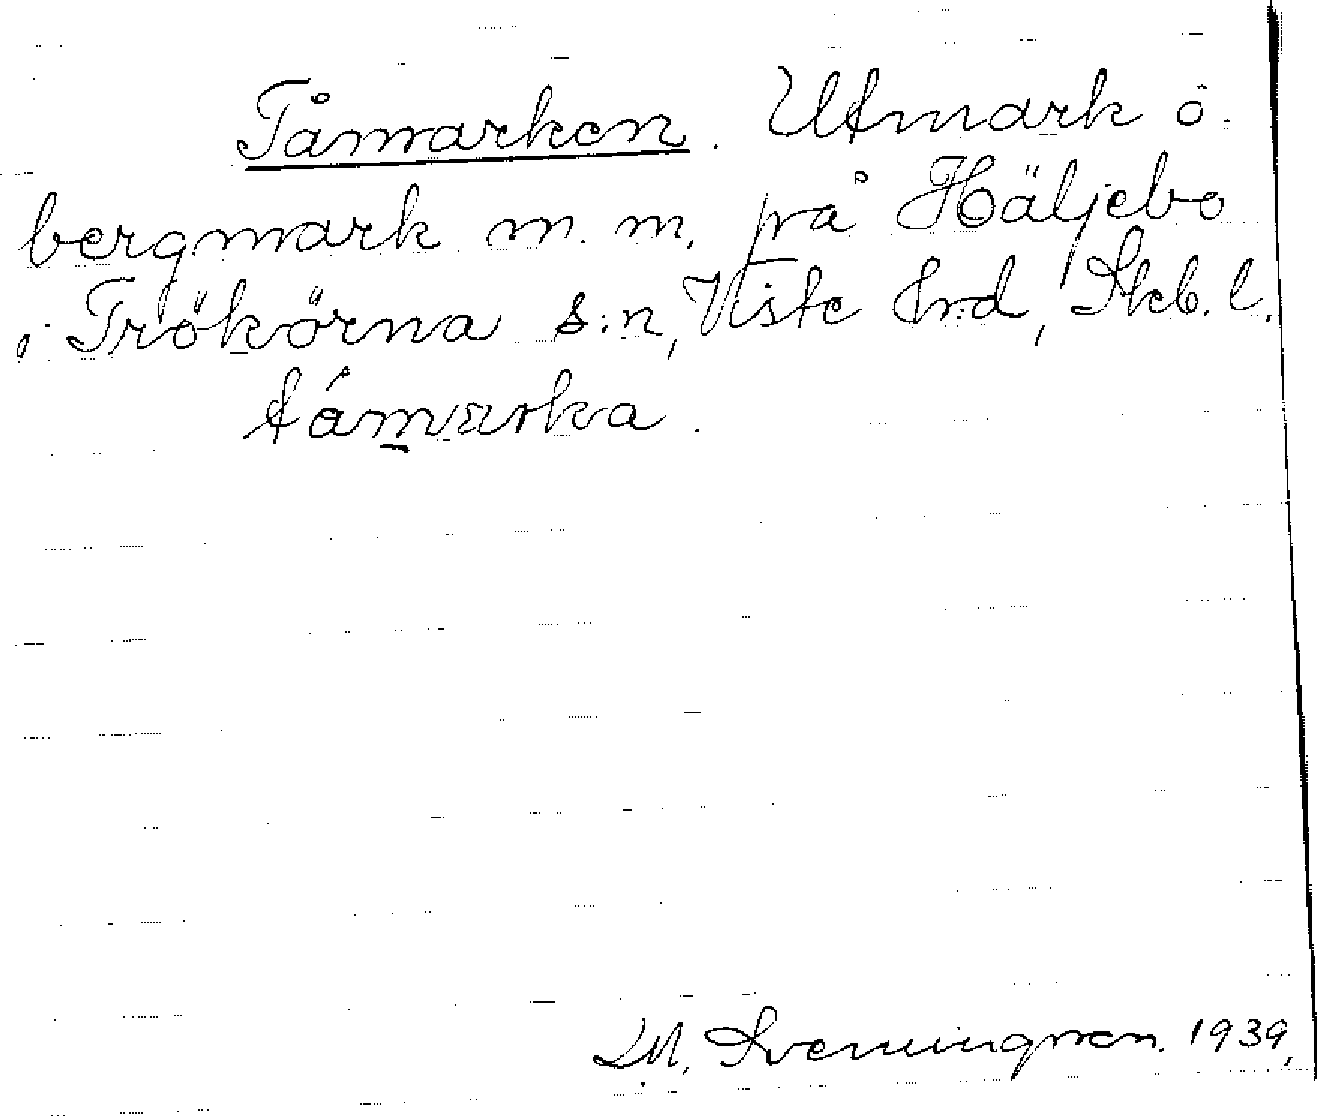 Tåmarken. Utmark o.
bergmark m. m. på Häljebo
i Trökörna s:n, Viste hd, Skb. l.
tåmarka.
M. Svenningson. 1939.